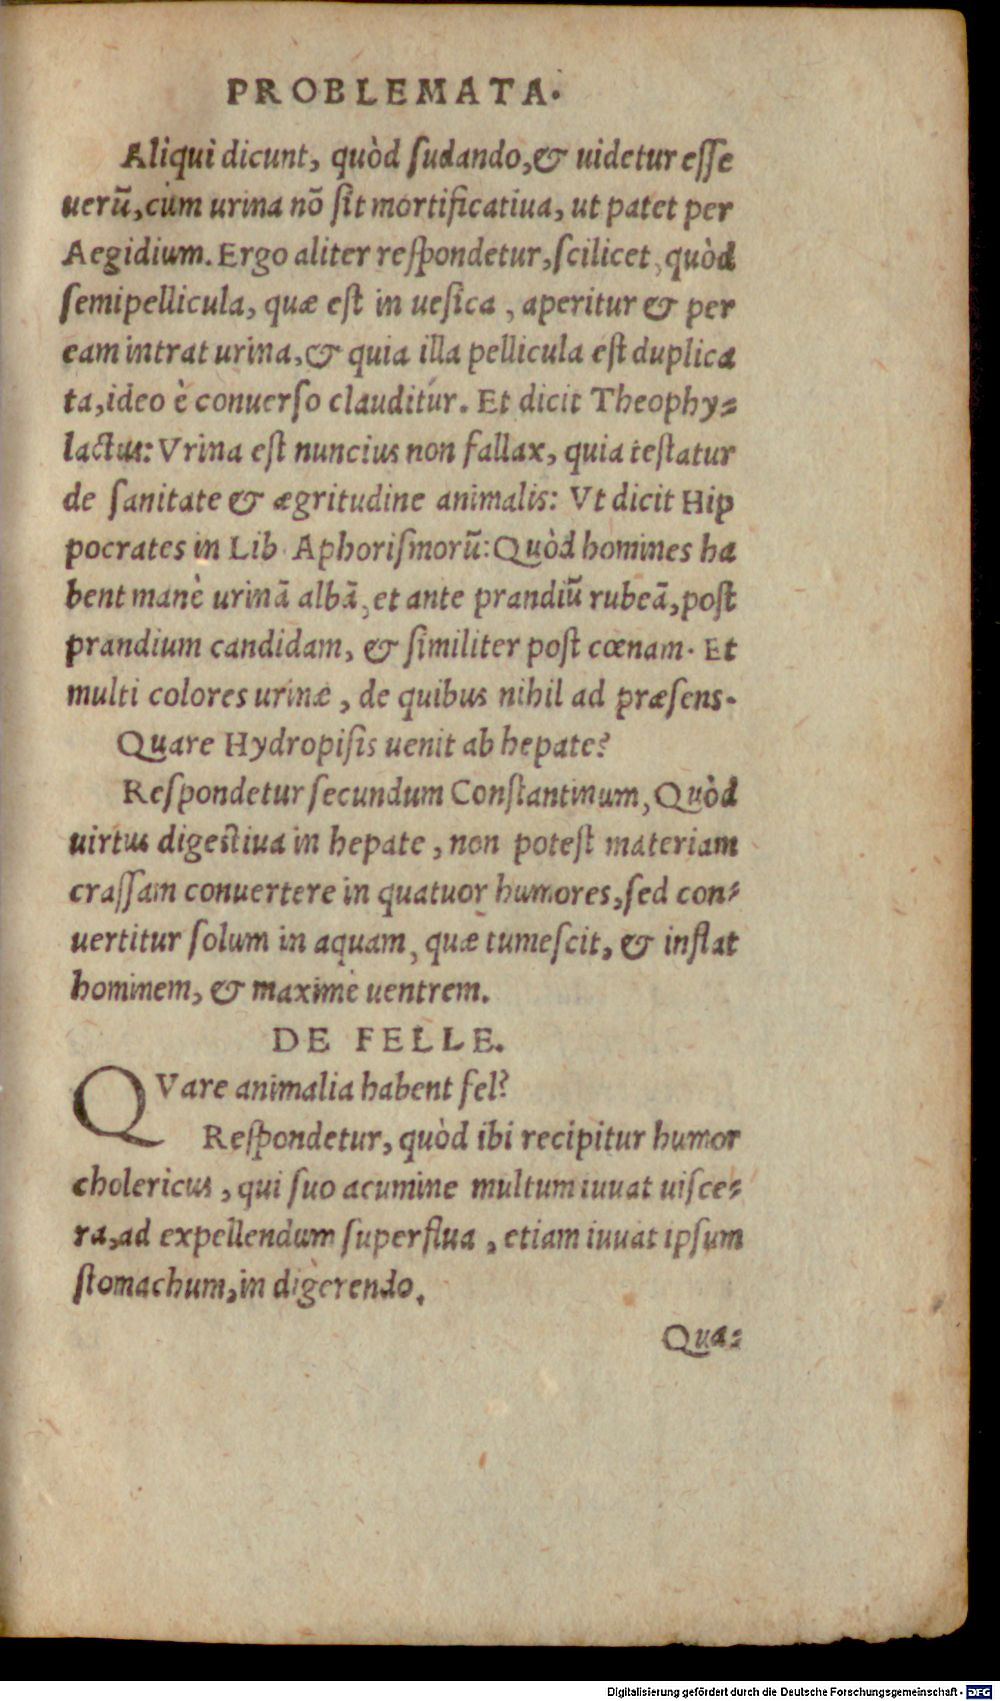 PROBLEMATA.
Aliqui dicunt, quòd ſudando, & uidetur eſſe
uerũ, cùm urina nõ ſit mortificatiua, ut patet per
Aegidium. Ergo aliter reſpondetur, ſcilicet, quòd
ſemipellicula, quæ eſt in ueſica, aperitur & per
eam intrat urina, & quia illa pellicula eſt duplica
ta, ideo è conuerſo clauditur. Et dicit Theophy-
lactus: Vrina eſt nuncius non fallax, quia teſtatur
de ſanitate & ægritudine animalis: Vt dicit Hip
pocrates in Lib. Aphoriſmorũ: Quòd homines ha
bent manè urinã albã, et ante prandiũ rubeã, poſt
prandium candidam, & ſimiliter poſt cœnam. Et
multi colores urinæ, de quibus nihil ad præſens.
Quare Hydropiſis uenit ab hepate?
Reſpondetur ſecundum Conſtantinum, Quòd
uirtus digeſtiua in hepate, non poteſt materiam
craſſam conuertere in quatuor humores, ſed con-
uertitur ſolum in aquam, quæ tumeſcit, & inflat
hominem, & maximè uentrem.
DE FELLE.
QVare animalia habent fel?
Reſpondetur, quòd ibi recipitur humor
cholericus, qui ſuo acumine multum iuuat uiſce-
ra, ad expellendum ſuperflua, etiam iuuat ipſum
ſtomachum, in digerendo.
Qua-
Digitalisierung gefördert durch die Deutsche Forschungsgemeinschaft - DFG